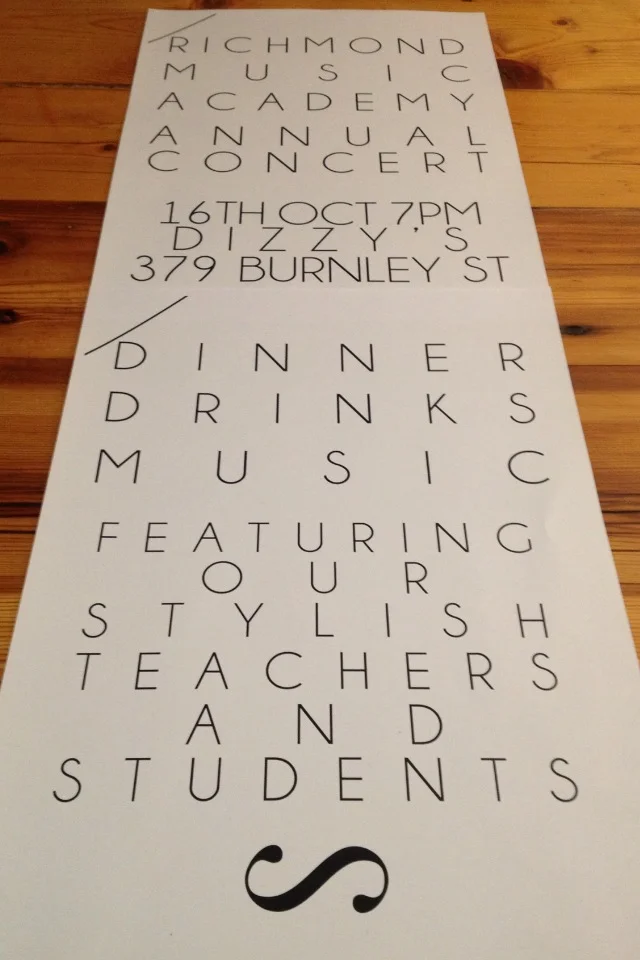 RICHMOND
MUSIC
ACADEMY
ANNUAL
CONCERT
16TH OCT 7PM
DIZZY'S
379 BURNLEY ST
DINNER
DRINKS
MUSIC
FEATURING
OUR
STYLISH
TEACHERS
AND
STUDENTS